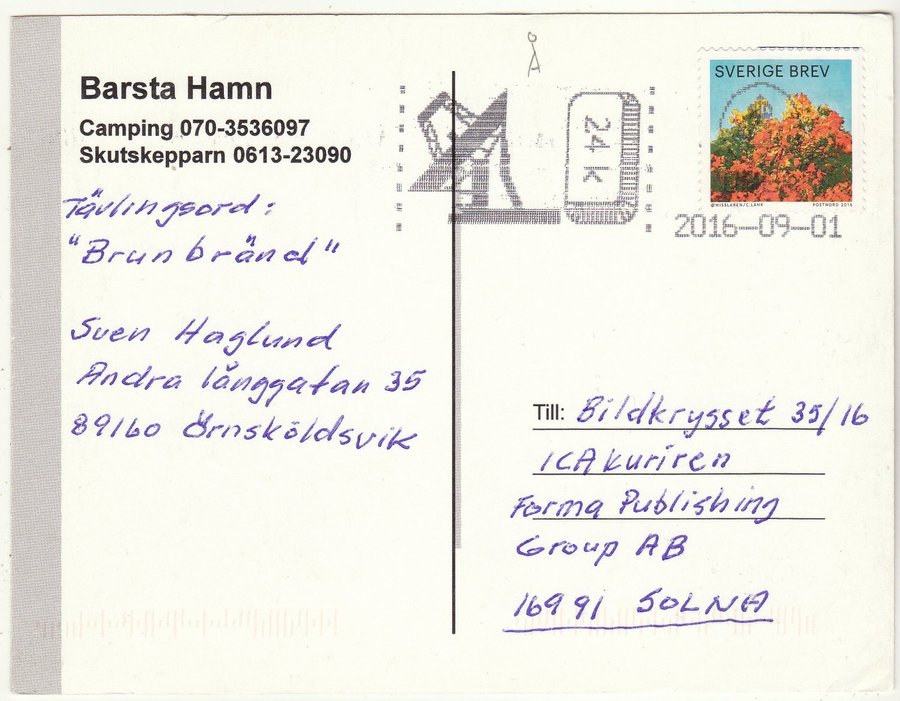 Barsta Hamn
Camping 070-3536097
Skutskepparn 0613-23090
Tävlingsord:
"Brunbränd"
Sven Haglund
Andra långgatan 35
89160 Örnsköldsvik
Å
24 K
SVERIGE BREV
©WISSLAREN/C.LÄHK POSTNORD 2016
2016-09-01
Till: Bildkrysset 35/16
ICAkuriren
Forma Publishing
Group AB
16991 SOLNA